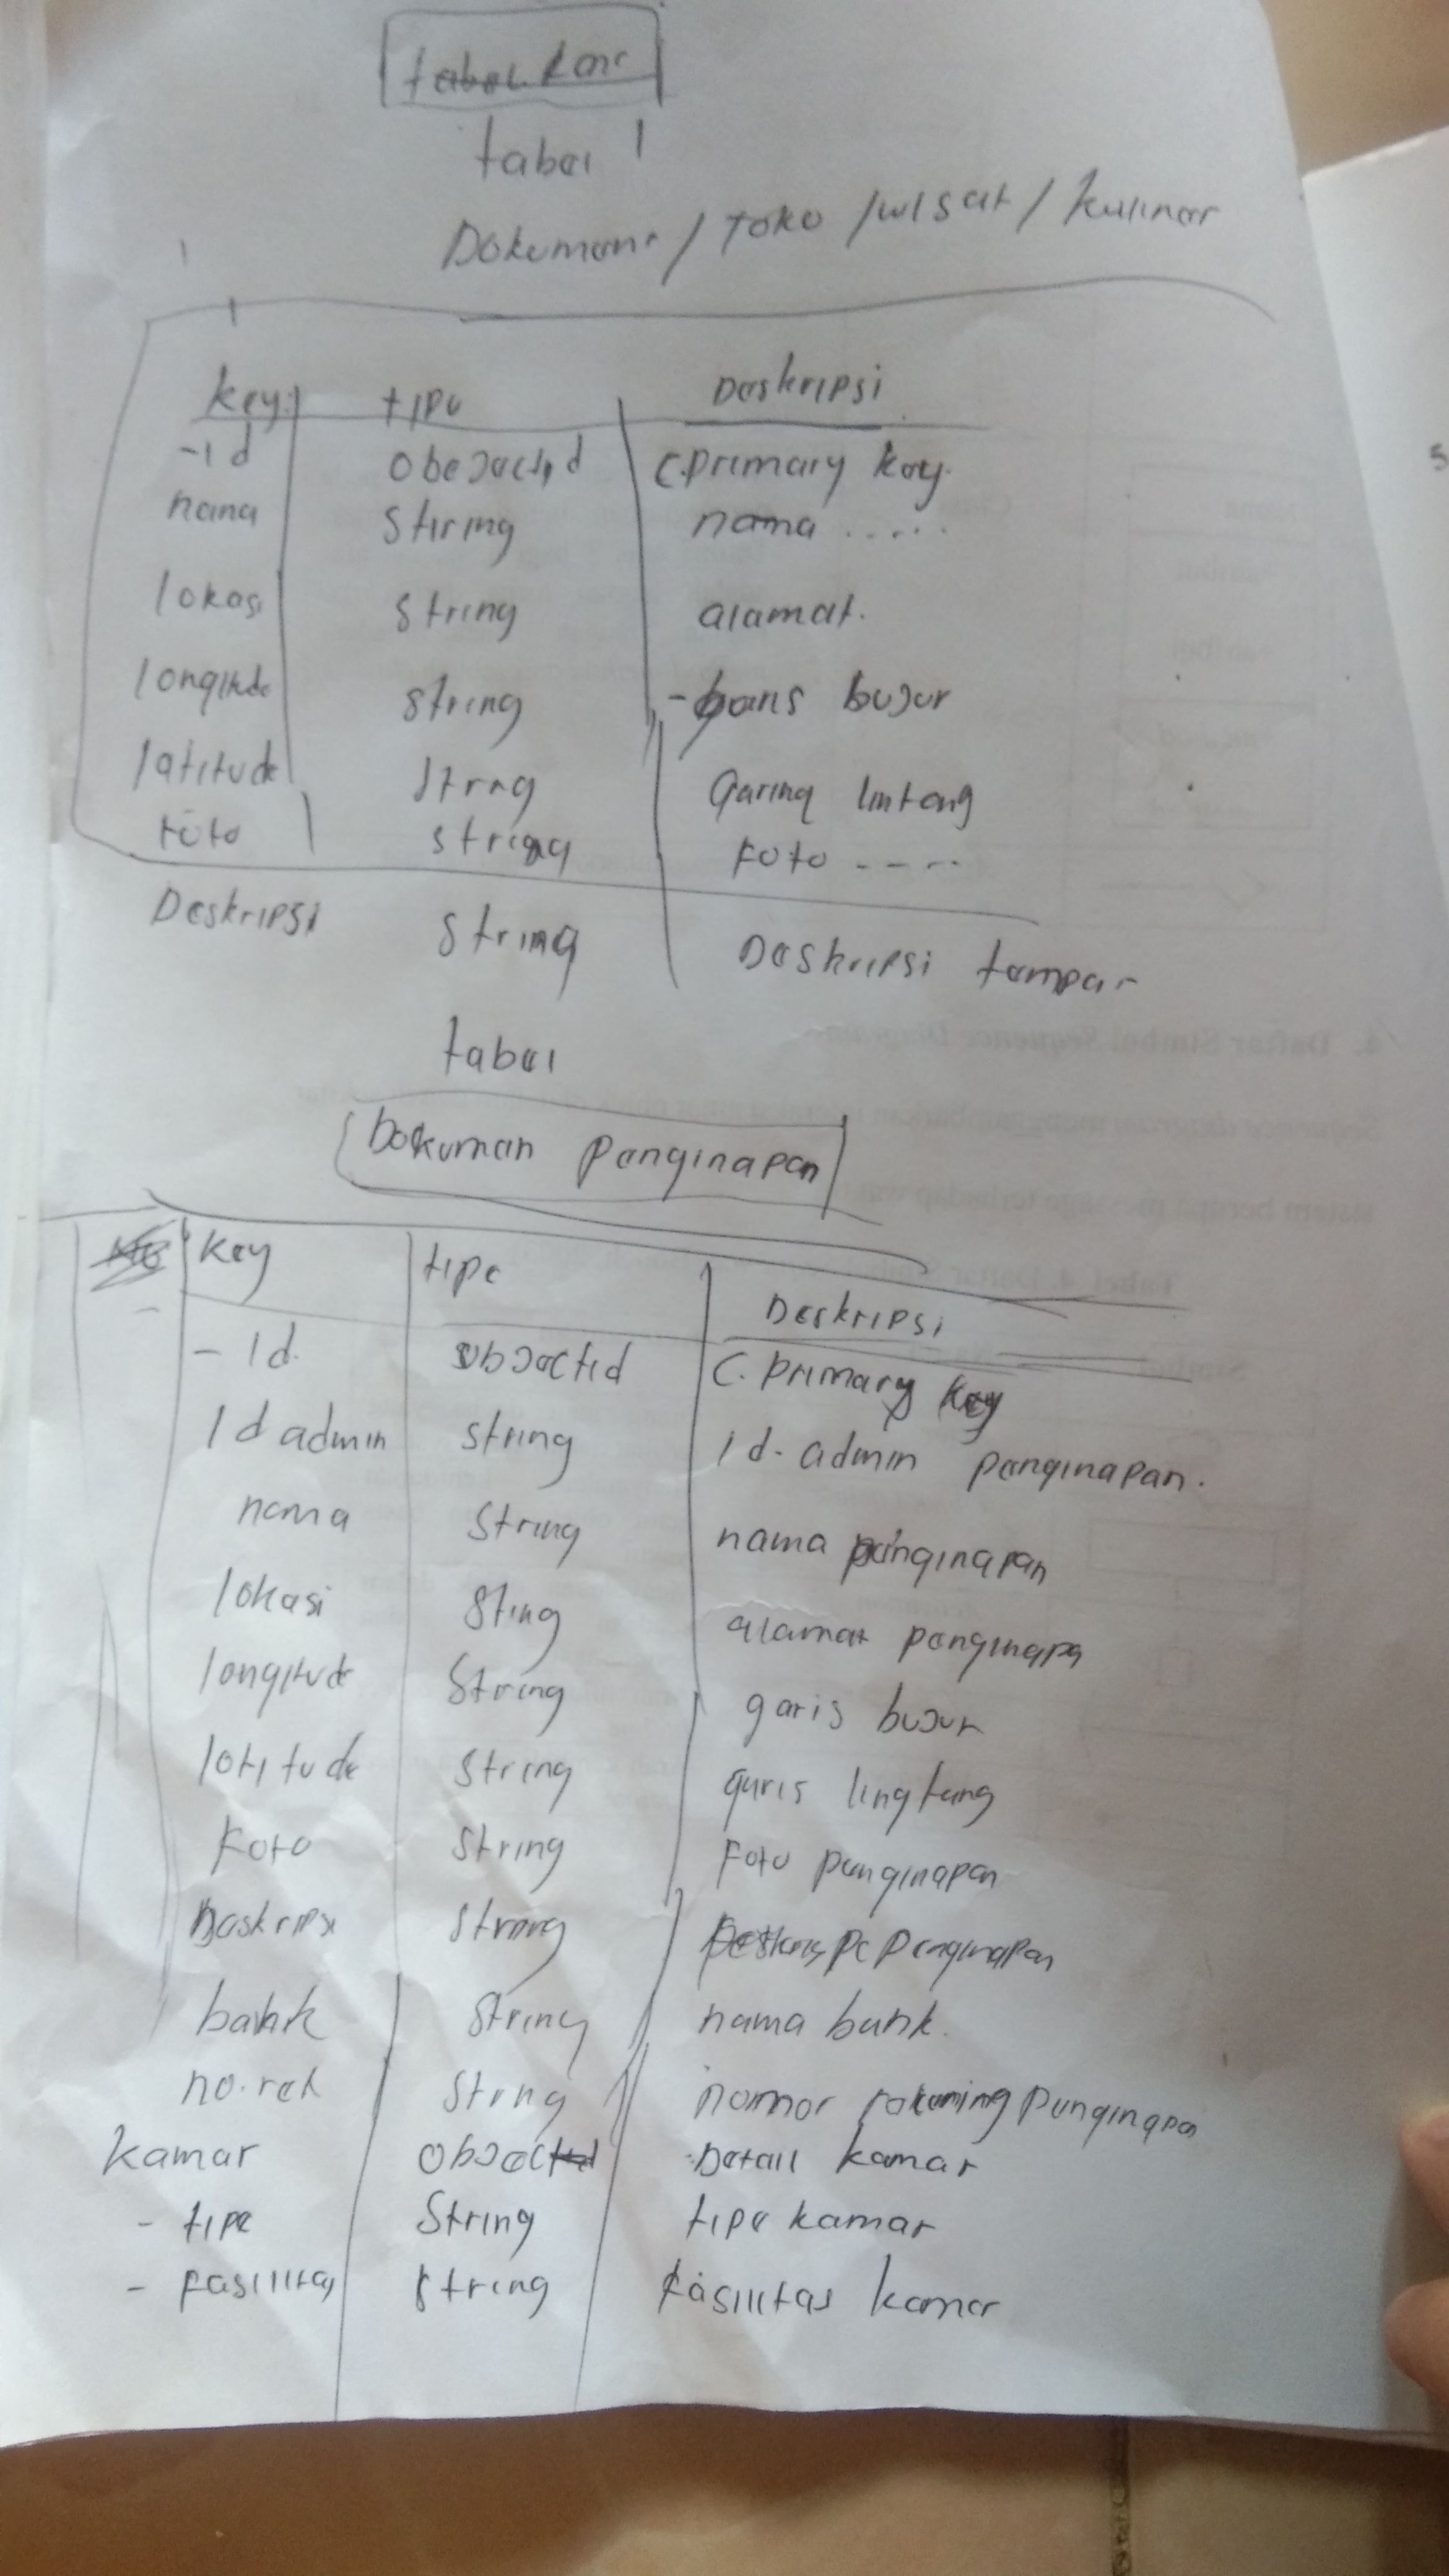 tabel
tabel 1
Dokumen / toko / wisat / kulinar
key tipe Deskripsi
-id obejectid C.primary key.
nama String nama .....
lokasi String alamat.
longitude String -garis bujur
latitude String Garing lintang
foto string Foto ----
Deskripsi String Deskripsi tempat
tabel
Dokuman Penginapan
key tipe Deskripsi
- id. objectid C. Primary key
Id admin string id. admin penginapan.
nama String nama penginapan
lokasi Sting alamat penginapa
longitude String garis bujur
latitude String garis lingtang
Foto String Foto penginapan
Deskripsi String penginapan
bank String nama bank.
no.rek String nomor rekening penginapan
kamar object Detail kamar
- tipe String tipe kamar
- Fasilitas String fasilitas kamar
4. Daftar Simbol Sequence Diagram
5